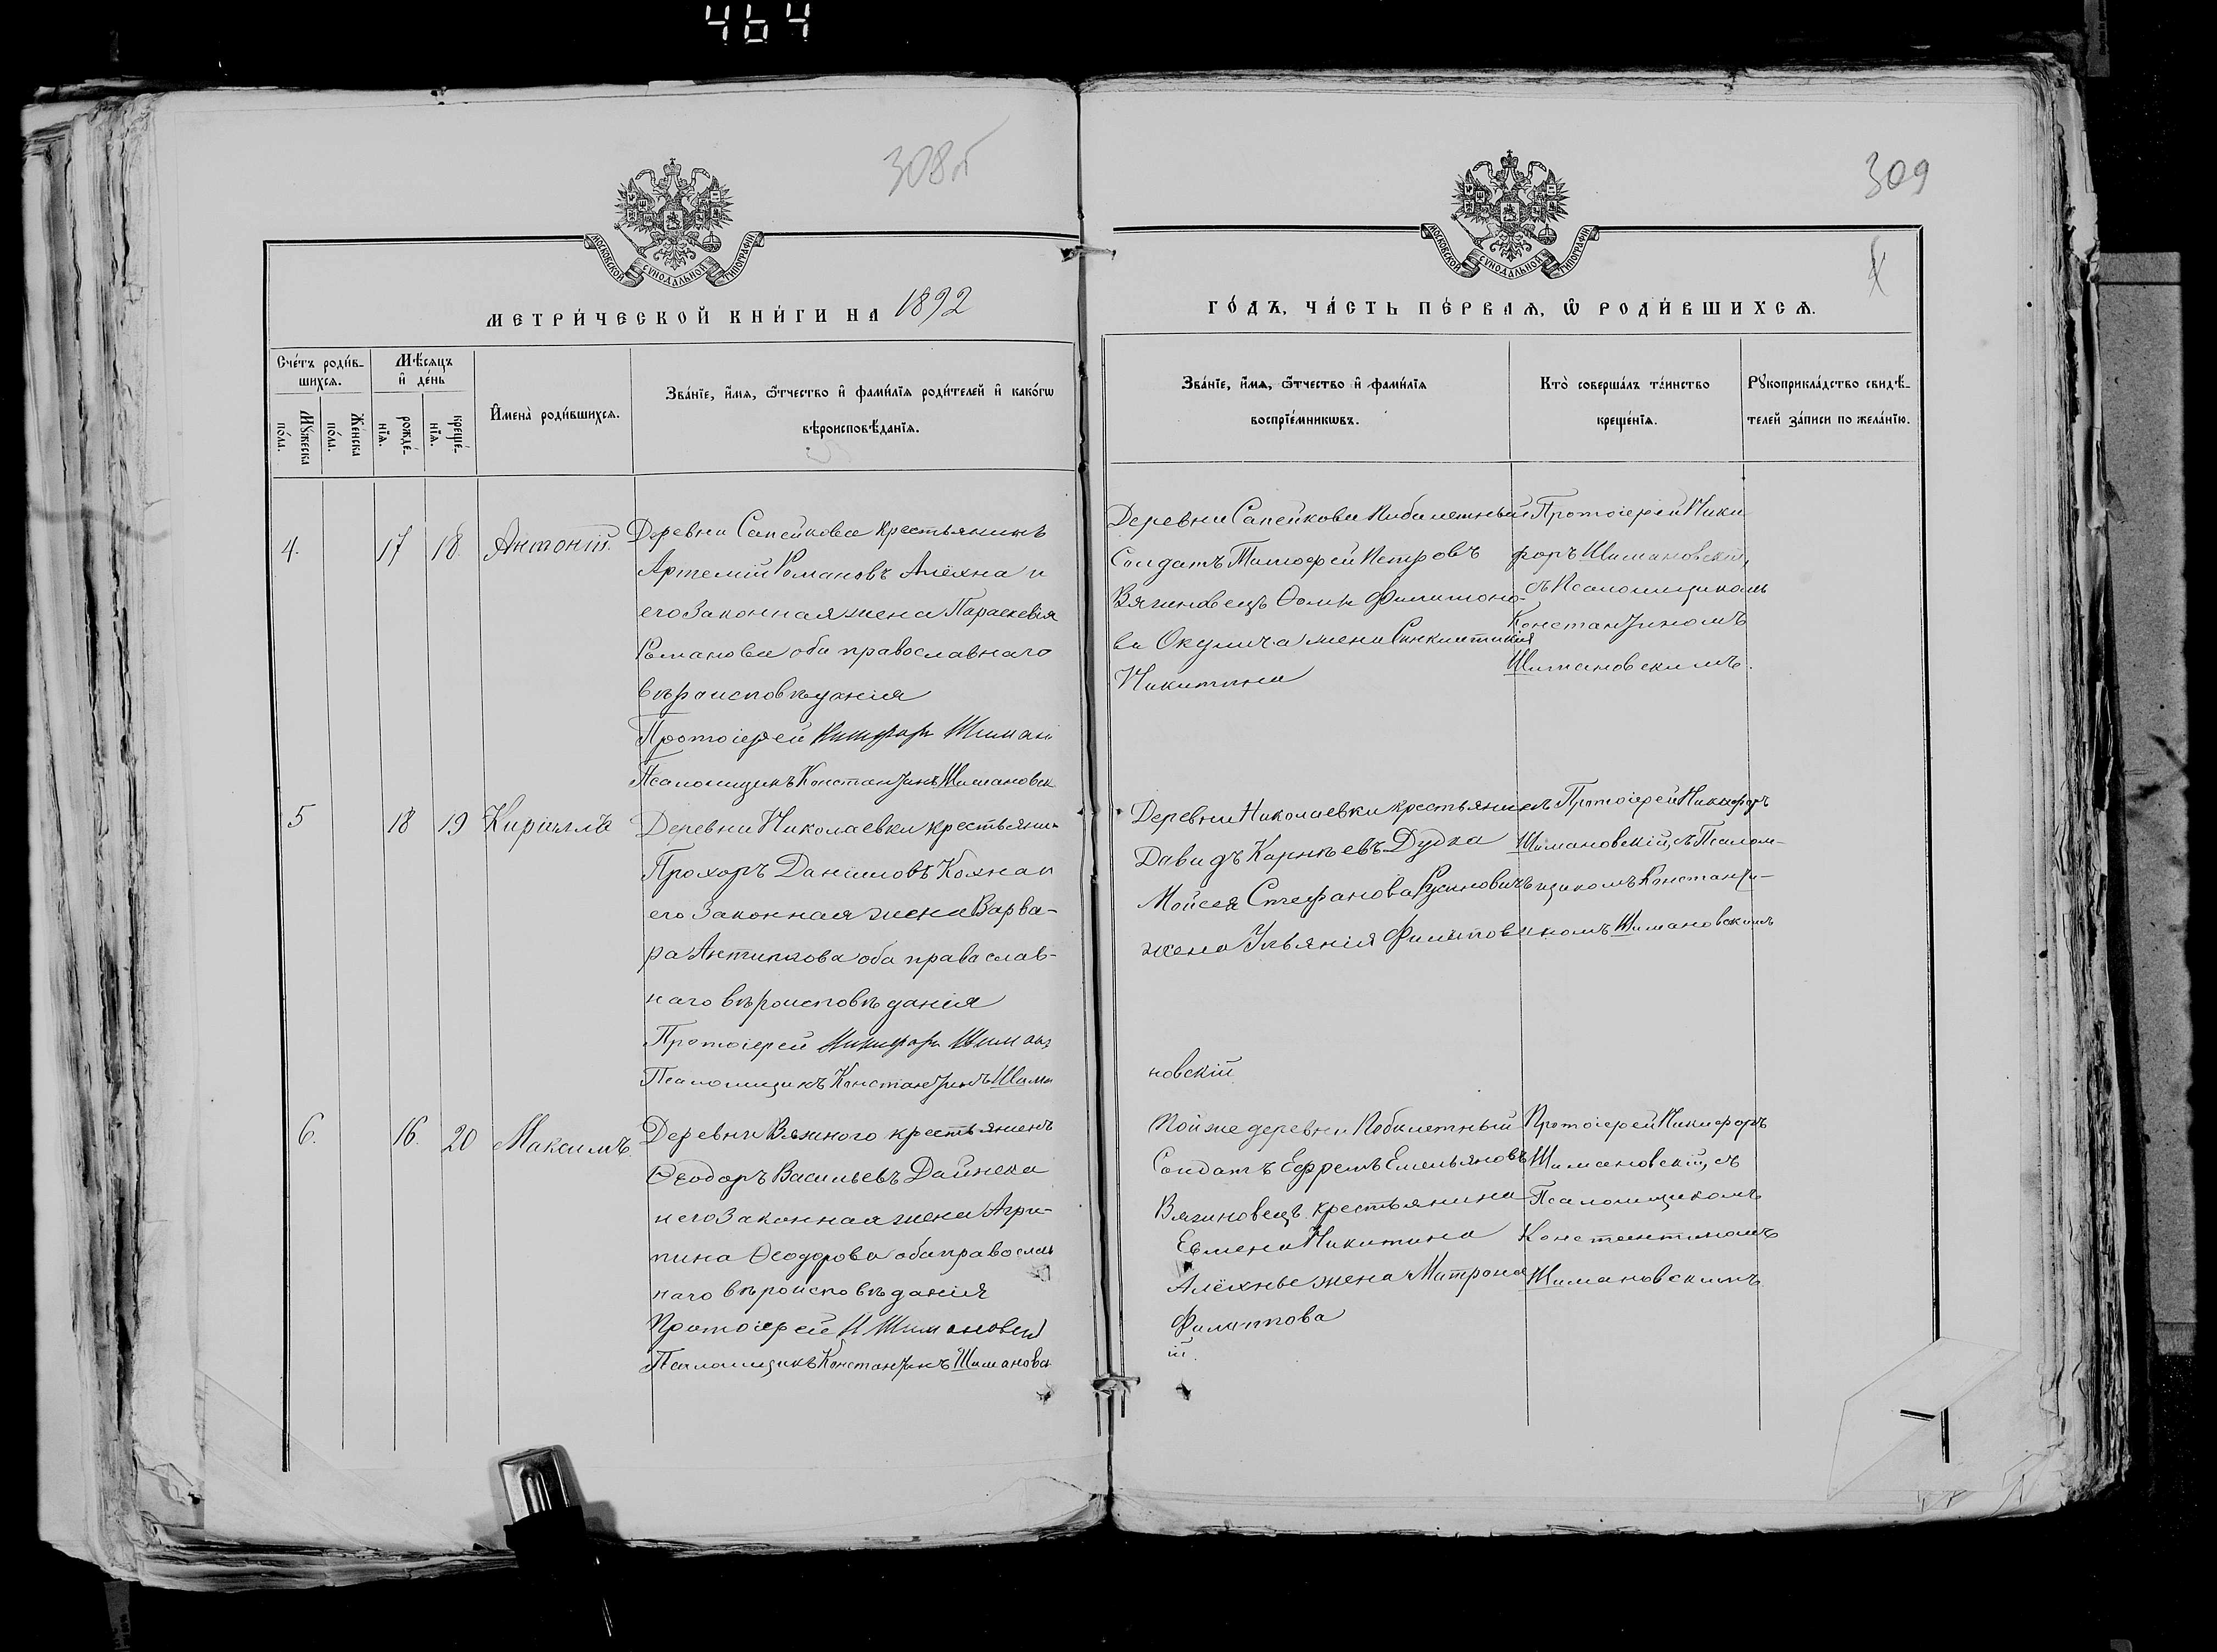 464
308об
309
МОСКОВСКОЙ СѴНОДАЛЬНОЙ ТИПОГРАФІИ
МОСКОВСКОЙ СѴНОДАЛЬНОЙ ТИПОГРАФІИ
МЕТРИ́ЧЕСКОЙ КНИ́ГИ НА 1892
ГО́ДЪ, ЧА́СТЬ ПЕ́РВАѦ, Ѡ҆ РОДИ́ВШИХСѦ.
Сче́тъ роди́в-
шихсѧ.
Мꙋ́жеска
по́ла.
Же́нска
по́ла.
Мѣ́сѧцъ
и҆ де́нь
рожде́-
нїѧ.
креще́-
нїѧ.
И҆мена̀ роди́вшихсѧ.
Зва́нїе, и҆́мѧ, ѻ҆́тчество и҆ фами́лїѧ роди́телей и҆ како́гѡ
вѣроисповѣ́данїѧ.
Зва́нїе, и҆́мѧ, ѻ҆́тчество и҆ фами́лїѧ
воспрїе́мникѡвъ.
Кто̀ соверша́лъ та́инство
креще́нїѧ.
Рꙋкоприкла́дство свидѣ́-
телей за́писи по жела́нїю.
4. 17 18. Антоній.
Деревни Сапейкова крестьянинъ
Артемій Романовъ Алёхна и
его законная жена Параскевія
Романова оба православнаго
вѣроисповѣданія
Протоіерей Никифоръ Шиман
Псаломщикъ Константинъ Шимановск
Деревни Сапейкова
Солдатъ Тимофей Петровъ
Вягиновецъ Ѳомы Филимоно-
ва Окулича жена Синклитикія
Никитина
Протоіерей Ники-
форъ Шимановскій,
съ Псаломщикомъ
Константиномъ
Шимановскимъ.
5 18 19 Кириллъ
Деревни Николаевки крестьянинъ
Прохоръ Даніиловъ Кохна и
его законная жена Варва-
ра Антипкова оба православ-
наго вѣроисповѣданія
Протоіерей Никифоръ Шиман
Псаломщикъ Константинъ Шима
Деревни Николаевки крестьянинъ
Давидъ Карнѣевъ Дудка
Мойсея Стефанова Русиновичъ
жена Ульянія Филипов
новскій
Протоіерей Никифоръ
Шимановскій, съ Псалом-
щикомъ Константи-
номъ Шимановскимъ
6. 16. 20 Максимъ.
Деревни Вяжного крестьянинъ
Ѳеодоръ Васильевъ Дайнека
и его законная жена Агри-
пина Ѳеодорова оба православ
наго вѣроисповѣданія
Протоіерей Н Шимановскій
Псаломщикъ Константинъ Шимановск
Той же деревни
Солдатъ Ефремъ Емельяновъ
Вягиновецъ крестьянина
Евмена Никитина
Алёхны жена Матрона
Филиппова
ій.
Протоіерей Никифоръ
Шимановскій, съ
Псаломщикомъ
Константиномъ
Шимановскимъ